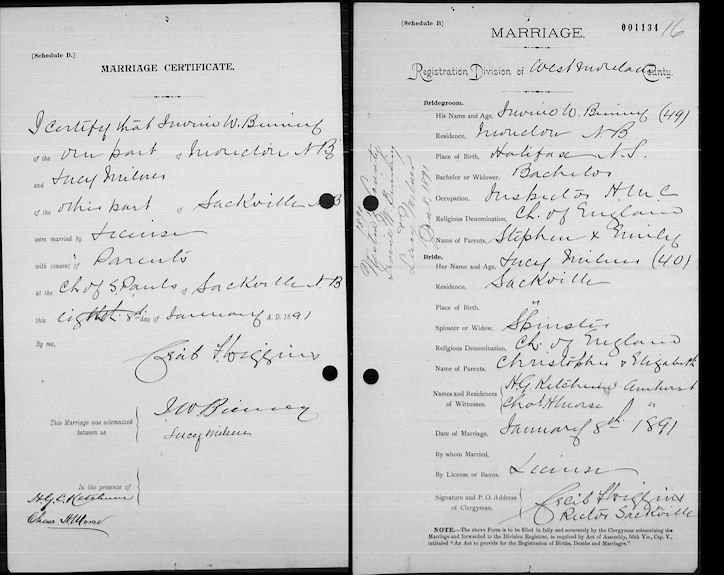 [Schedule B.]
MARRIAGE CERTIFICATE.
I certify that Irvine W. Binney
of the one part of Moncton N B
and Lucy Milnes
of the other part of Sackville N B
were married by License
with consent of Parents
at the Ch of S Pauls of Sackville N B
this eighth 8th day of January A. D. 1891
By me,
Cecil F Wiggins
This Marriage was solemnized between us
I W Binney
Lucy Milnes
In the presence of
H. G. C. Ketchum
Chas. H Morse
[Schedule B]
MARRIAGE.
001134 16
Registration Division of Westmorland County.
Bridegroom.
His Name and Age, Irvine W. Binney (49)
Residence, Moncton N B
Place of Birth, Halifax N. S.
Bachelor or Widower, Bachelor
Occupation, Inspector H. M. C
Religious Denomination, Ch. of England
Name of Parents, Stephen & Emily
Bride.
Her Name and Age, Lucy Milnes (40)
Residence, Sackville
Place of Birth, "
Spinster or Widow, Spinster
Religious Denomination, Ch. of England
Name of Parents, Christopher & Elizabeth
Names and Residences of Witnesses.
H. G. Ketchum Amherst
Chas. H Morse "
Date of Marriage, January 8th 1891
By whom Married,
By License or Banns, License
Signature and P. O. Address of Clergyman,
Cecil F Wiggins
Rector Sackville
NOTE.—The above Form is to be filled in fully and accurately by the Clergyman solemnizing the
Marriage and forwarded to the Division Registrar, as required by Act of Assembly, 50th Vic., Cap. V.,
intituled "An Act to provide for the Registration of Births, Deaths and Marriages."
1891
Irvine W. Binney
&
Lucy Milnes
8, 1891